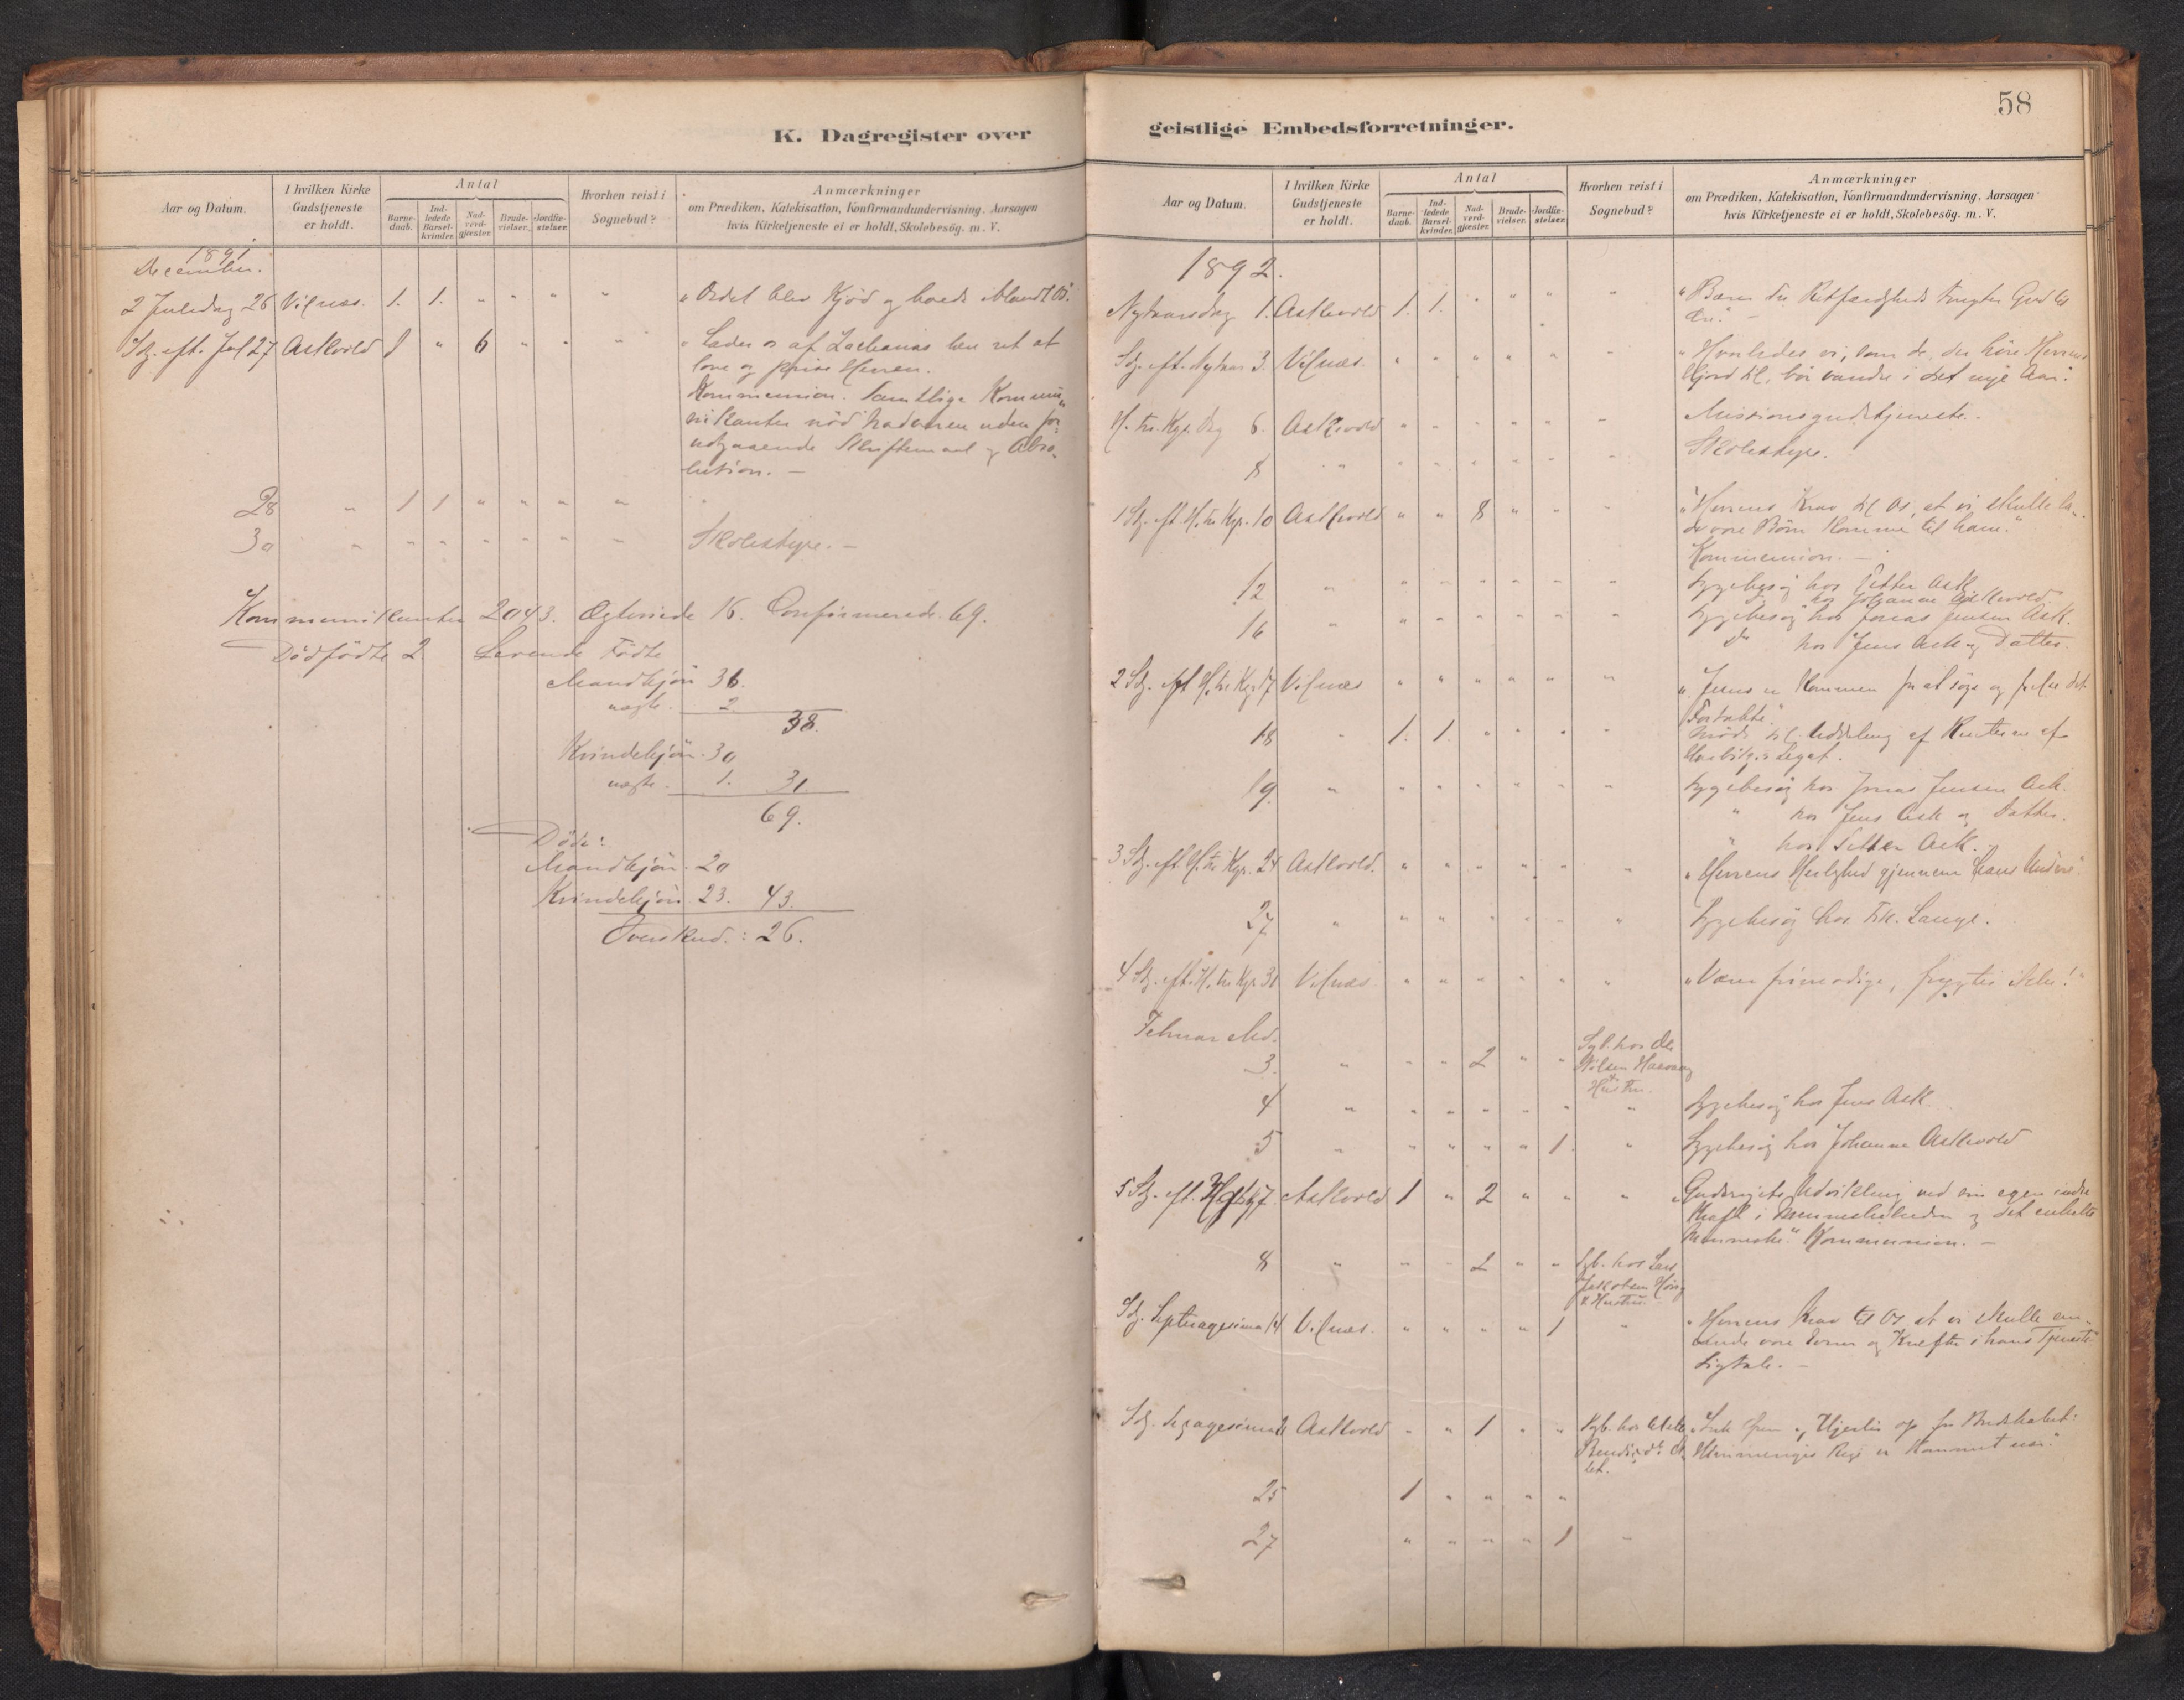 K. Dagregister over
Aar og Datum.
I hvilken Kirke Gudstjeneste er holdt.
Antal
Barnedaab.
Indledede Barselkvinder.
Nadverdgjæster.
Brudevielser.
Jordfæstelser.
Hvorhen reist i Sognebud?
Anmærkninger
om Prædiken, Katekisation, Konfirmandundervisning, Aarsagen
hvis Kirketjeneste ei er holdt, Skolebesög. m. V.
1891
December.
2 Juledag 26 Vilnæs. 1. 1. " " " " "Ordet blev Kjød og boede iblandt Os".
Sdg. eft. Jul 27 Askvold 1 " 6 " " " "Lader os af Zacharias lære ret at
love og prise Herren.
Kommunion. Samtlige Kommu-
nikanter nöd Nadveren uden for-
udgaaende Skriftemaal og Abso-
lution. —
28 " 1 1 " " " "
30 " " " " " " " Skolestyre. —
Kommunikanter 2043. Ægteviede 16. Confirmerede 69.
Dödfödte 2. Levende Födte
Mandkjön 36.
uægte. 2
38.
Kvindekjön. 30
uægte. 1. 31.
69.
Döde:
Mandkjön. 20
Kvindekjön. 23. 43.
Overskud.: 26.
58
geistlige Embedsforretninger.
Aar og Datum.
I hvilken Kirke Gudstjeneste er holdt.
Antal
Barnedaab.
Indledede Barselkvinder.
Nadverdgjæster.
Brudevielser.
Jordfæstelser.
Hvorhen reist i Sognebud?
Anmærkninger
om Prædiken, Katekisation, Konfirmandundervisning, Aarsagen
hvis Kirketjeneste ei er holdt, Skolebesög. m. V.
1892.
Nytaarsdag 1. Askevold 1. 1. " " " " "Bærer Retfærdigheds Frugter Gud til
Ære." —
Sdg. eft. Nytaar 3. Vilnæs. " " " " " " "Hvorledes vi, som de, der høre Herrens
Hjord til, bör vandre i det nye Aar".
H. tre Kgr. Dag 6. Askevold " " " " " " Missionsgudstjeneste.
8 " " " " " " " Skolestyre.
1 Sdg. eft. H. tre Kgr. 10 Askevold " " 8 " " " "Herrens Krav til Os, at vi skulle la-
de vore Börn komme til ham."
Kommunion. —
12 " " " " " " " Sygebesög hos Petter Ask
hos Johanne Askevold
16 " " " " " " " Sygebesög hos Jonas Jensen Ask.
Do hos Jens Ask og Datter.
2 Sdg. eft. H. tre Kgr. 17 Vilnæs " " " " " " "Jesus er kommen for at søge og frelse det
Fortabte".
18 " 1. 1. " " " " Möde til Uddeling af Renterne af
Legat.
19. " " " " " " " Sygebesög hos Jonas Jensen Ask.
" hos Jens Ask og Datter.
" hos Petter Ask.
3 Sdg. eft. H. tre Kgr. 24 Askvold. " " " " " " "Herrens Herlighed gjennem hans Undere".
27 " " " " " " " Sygebesög hos Frk. Lange.
4 Sdg. eft. H. tre Kgr. 31 Vilnæs " " " " " " "Værer frimodige, frygter ikke!"
Februar Md.
3. " " " 2 " " Sgb. hos Ole
Nilsen
Hustru.
4 " " " " " " " Sygebesög hos Jens Ask.
5 " " " " " 1. " Sygebesög hos Johanne Askevold
5 Sdg. eft. H. 7. Askvold 1 " 2 " " " "Gudsrigets Udvikling ved sin egen indre
Kraft i Menneskeheden og det enkelte
Menneske". Kommunion. —
8 " " " 2 " " Sgb. hos Lars
Jakobsen
& Hustru.
Sdg. Septuagesima 14 Vilnæs. " " " " 1 " "Herrens Krav til Os, at vi skulle an-
vende vore Evner og Kræfter i hans Tjeneste"
Ligtale. —
Sdg. Sexagesima Askvold " " 1 " " Sgb. hos
"Luk Hjertet op for Budskabet:
Himmeriges Rige er kommet nær".
25 1 " " " "
27 " " " " 1 "